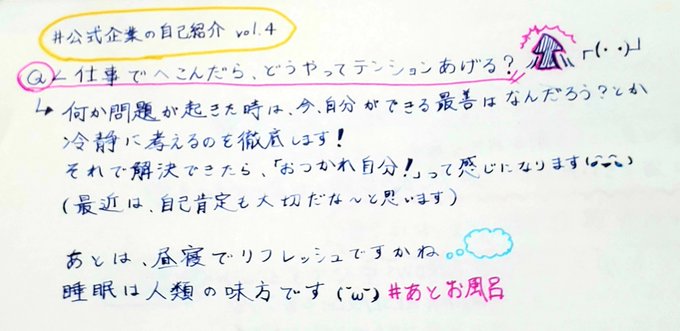 #公式企業の自己紹介 vol.4
Q 仕事でへこんだら、どうやってテンションあげる? ┌(・・)┘
↳ 何か問題が起きた時は、今、自分ができる最善はなんだろう?とか
冷静に考えるのを徹底します!
それで解決できたら、「おつかれ自分!」って感じになります
(最近は、自己肯定も大切だな〜と思います)
あとは、昼寝でリフレッシュですかね
睡眠は人類の味方です (˘ω˘) #あとお風呂